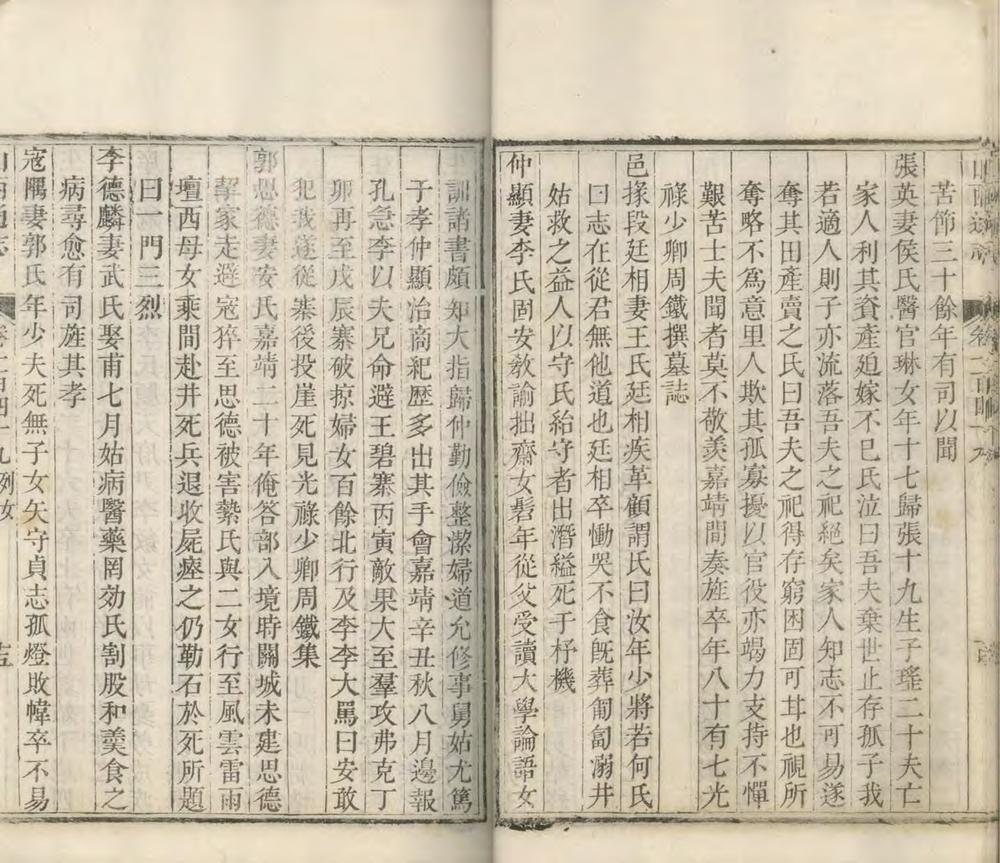 山西通志 卷一百四十九
苦節三十餘年有司以聞
張英妻侯氏醫官琳女年十七歸張十九生子瑤二十夫亡
家人利其資產廹嫁不巳氏泣曰吾夫棄世止存孤子我
若適人則子亦流落吾夫之祀絕矣家人知志不可易遂
奪其田產賣之氏曰吾夫之祀得存窮困固可甘也視所
奪略不為意里人欺其孤寡擾以官役亦竭力支持不憚
艱苦士夫聞者莫不敬羨嘉靖間奏旌卒年八十有七光
祿少卿周鐵撰墓誌
邑掾段廷相妻王氏廷相疾革顧謂氏曰汝年少將若何氏
曰志在從君無他道也廷相卒慟哭不食旣葬匍匐溺井
姑救之益人以守氏紿守者出潛縊死于杼機
仲顯妻李氏固安教諭拙齋女髫年從父受讀大學論語女
訓諸書頗知大指歸仲勤儉整潔婦道允修事舅姑尤篤
于孝仲顯治商紀歷多出其手會嘉靖辛丑秋八月邊報
孔急李以夫兄命避王碧寨丙寅敵果大至羣攻弗克丁
卯再至戊辰寨破掠婦女百餘北行及李李大罵曰安敢
犯我遂從寨後投崖死見光祿少卿周鐵集
郭思德妻安氏嘉靖二十年俺答部入境時關城未建思德
挈家走避寇猝至思德被害縶氏與二女行至風雲雷雨
壇西母女乘間赴井死兵退收屍瘞之仍勒石於死所題
曰一門三烈
李德麟妻武氏娶甫七月姑病醫藥罔効氏割股和羹食之
病尋愈有司旌其孝
寇隅妻郭氏年少夫死無子女矢守貞志孤燈敗幃卒不易
山西通志 卷一百四十九 列女